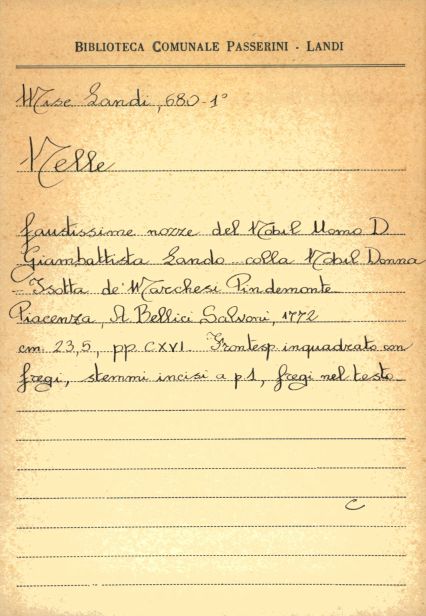 BIBLIOTECA COMUNALE PASSERINI - LANDI
Misc Landi, 680-1°
Nelle
faustissime nozze del Nobil Uomo D
Giambattista Lando colla Nobil Donna
Isotta de' Marchesi Pindemonte
Piacenza, A Bellici Salvoni, 1772
cm 23,5, pp CXVI Frontesp inquadrato con
fregi, stemmi incisi a p 1, fregi nel testo
C